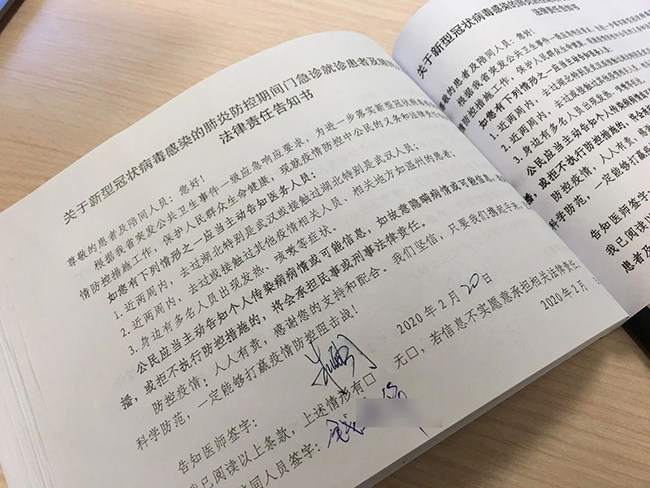 关于新型冠状病毒感染的肺炎防控期间门急诊就诊患者及陪
法律责任告知书
尊敬的患者及陪同人员：您好！
根据我省突发公共卫生事件一级应急响应要求，为进一步落实新型冠状病毒
情防控措施工作，保护人民群众生命健康，现就疫情防控中公民的义务和法律责任
如您有下列情形之一应当主动告知医务人员：
1.近两周内，去过湖北特别是武汉或接触过湖北特别是武汉人员；
2.近两周内，去过或接触过其他疫情相关人员、相关地方如温州的患者；
3.身边有多名人员出现发热、咳嗽等症状。
公民应当主动告知个人传染病病情或可能信息，如故意隐瞒病情或可能信息，
播，或拒不执行防控措施的，将会承担民事或刑事法律责任。
防控疫情，人人有责，感谢您的支持和配合。我们坚信，只要我们携起手来，
科学防范，一定能够打赢疫情防控阻击战！
告知医师签字：
2020年2月20日
我已阅读以上条款，上述情形有口 无口，若信息不实愿意承担相关法律责任
同人员签字：
2020年2月
关于新型冠状病毒感染的肺炎防控
法律责任告知书
尊敬的患者及陪同人员：您好！
根据我省突发公共卫生事件一级应急响应
情防控措施工作，保护人民群众生命健康，
如您有下列情形之一应当主动告知
1.近两周内，去过湖北特别是武汉
2.近两周内，去过或接触过其他疫
3.身边有多名人员出现发热、咳
公民应当主动告知个人传染病
播，或拒不执行防控措施的，
防控疫情，人人有责，
科学防范，一定能够打赢疫
告知医师签字：
我已阅读以上